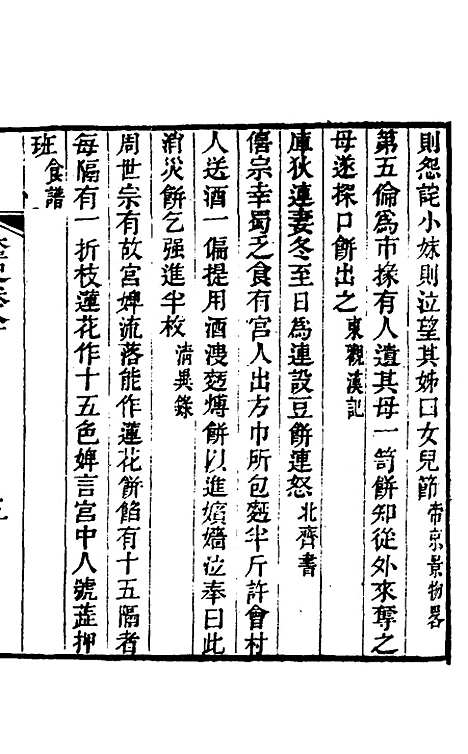 則怨詫小妹則泣望其姊曰女兒節帝京景物畧
第五倫爲市掾有人遺其母一笥餅知從外來奪之
母遂探口餅出之東觀漢記
厙狄連妻冬至日爲連設豆餅連怒北齊書
僖宗幸蜀乏食有宮人出方巾所包麫半斤許會村
人送酒一偏提用酒溲麫煿餅以進嬪嬙泣奉曰此
消災餅乞强進半枚淸異錄
周世宗有故宮婢流落能作蓮花餅餡有十五隔者
每隔有一折枝蓮花作十五色婢言宮中人號蕋押
班食譜